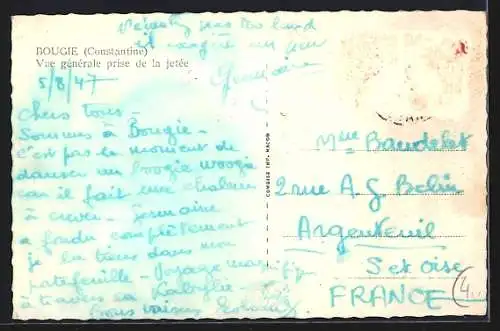 BOUGIE (Constantine)
Vue générale prise de la jetée
5/8/47
pas trop chaud
il souffle un peu
Germaine
Chers tous -
Sommes à Bougie -
c'est pas le moment de
danser un boogie woogie
car il fait une chaleur
à crever - Germaine
a fondu complètement
je la tiens dans mon
portefeuille - Voyage magnifique
à travers la Kabylie -
Bons baisers
COMBIER IMP. MACON
Mme Baudelet
2 rue A G Belin
Argenteuil
S et Oise
FRANCE
4